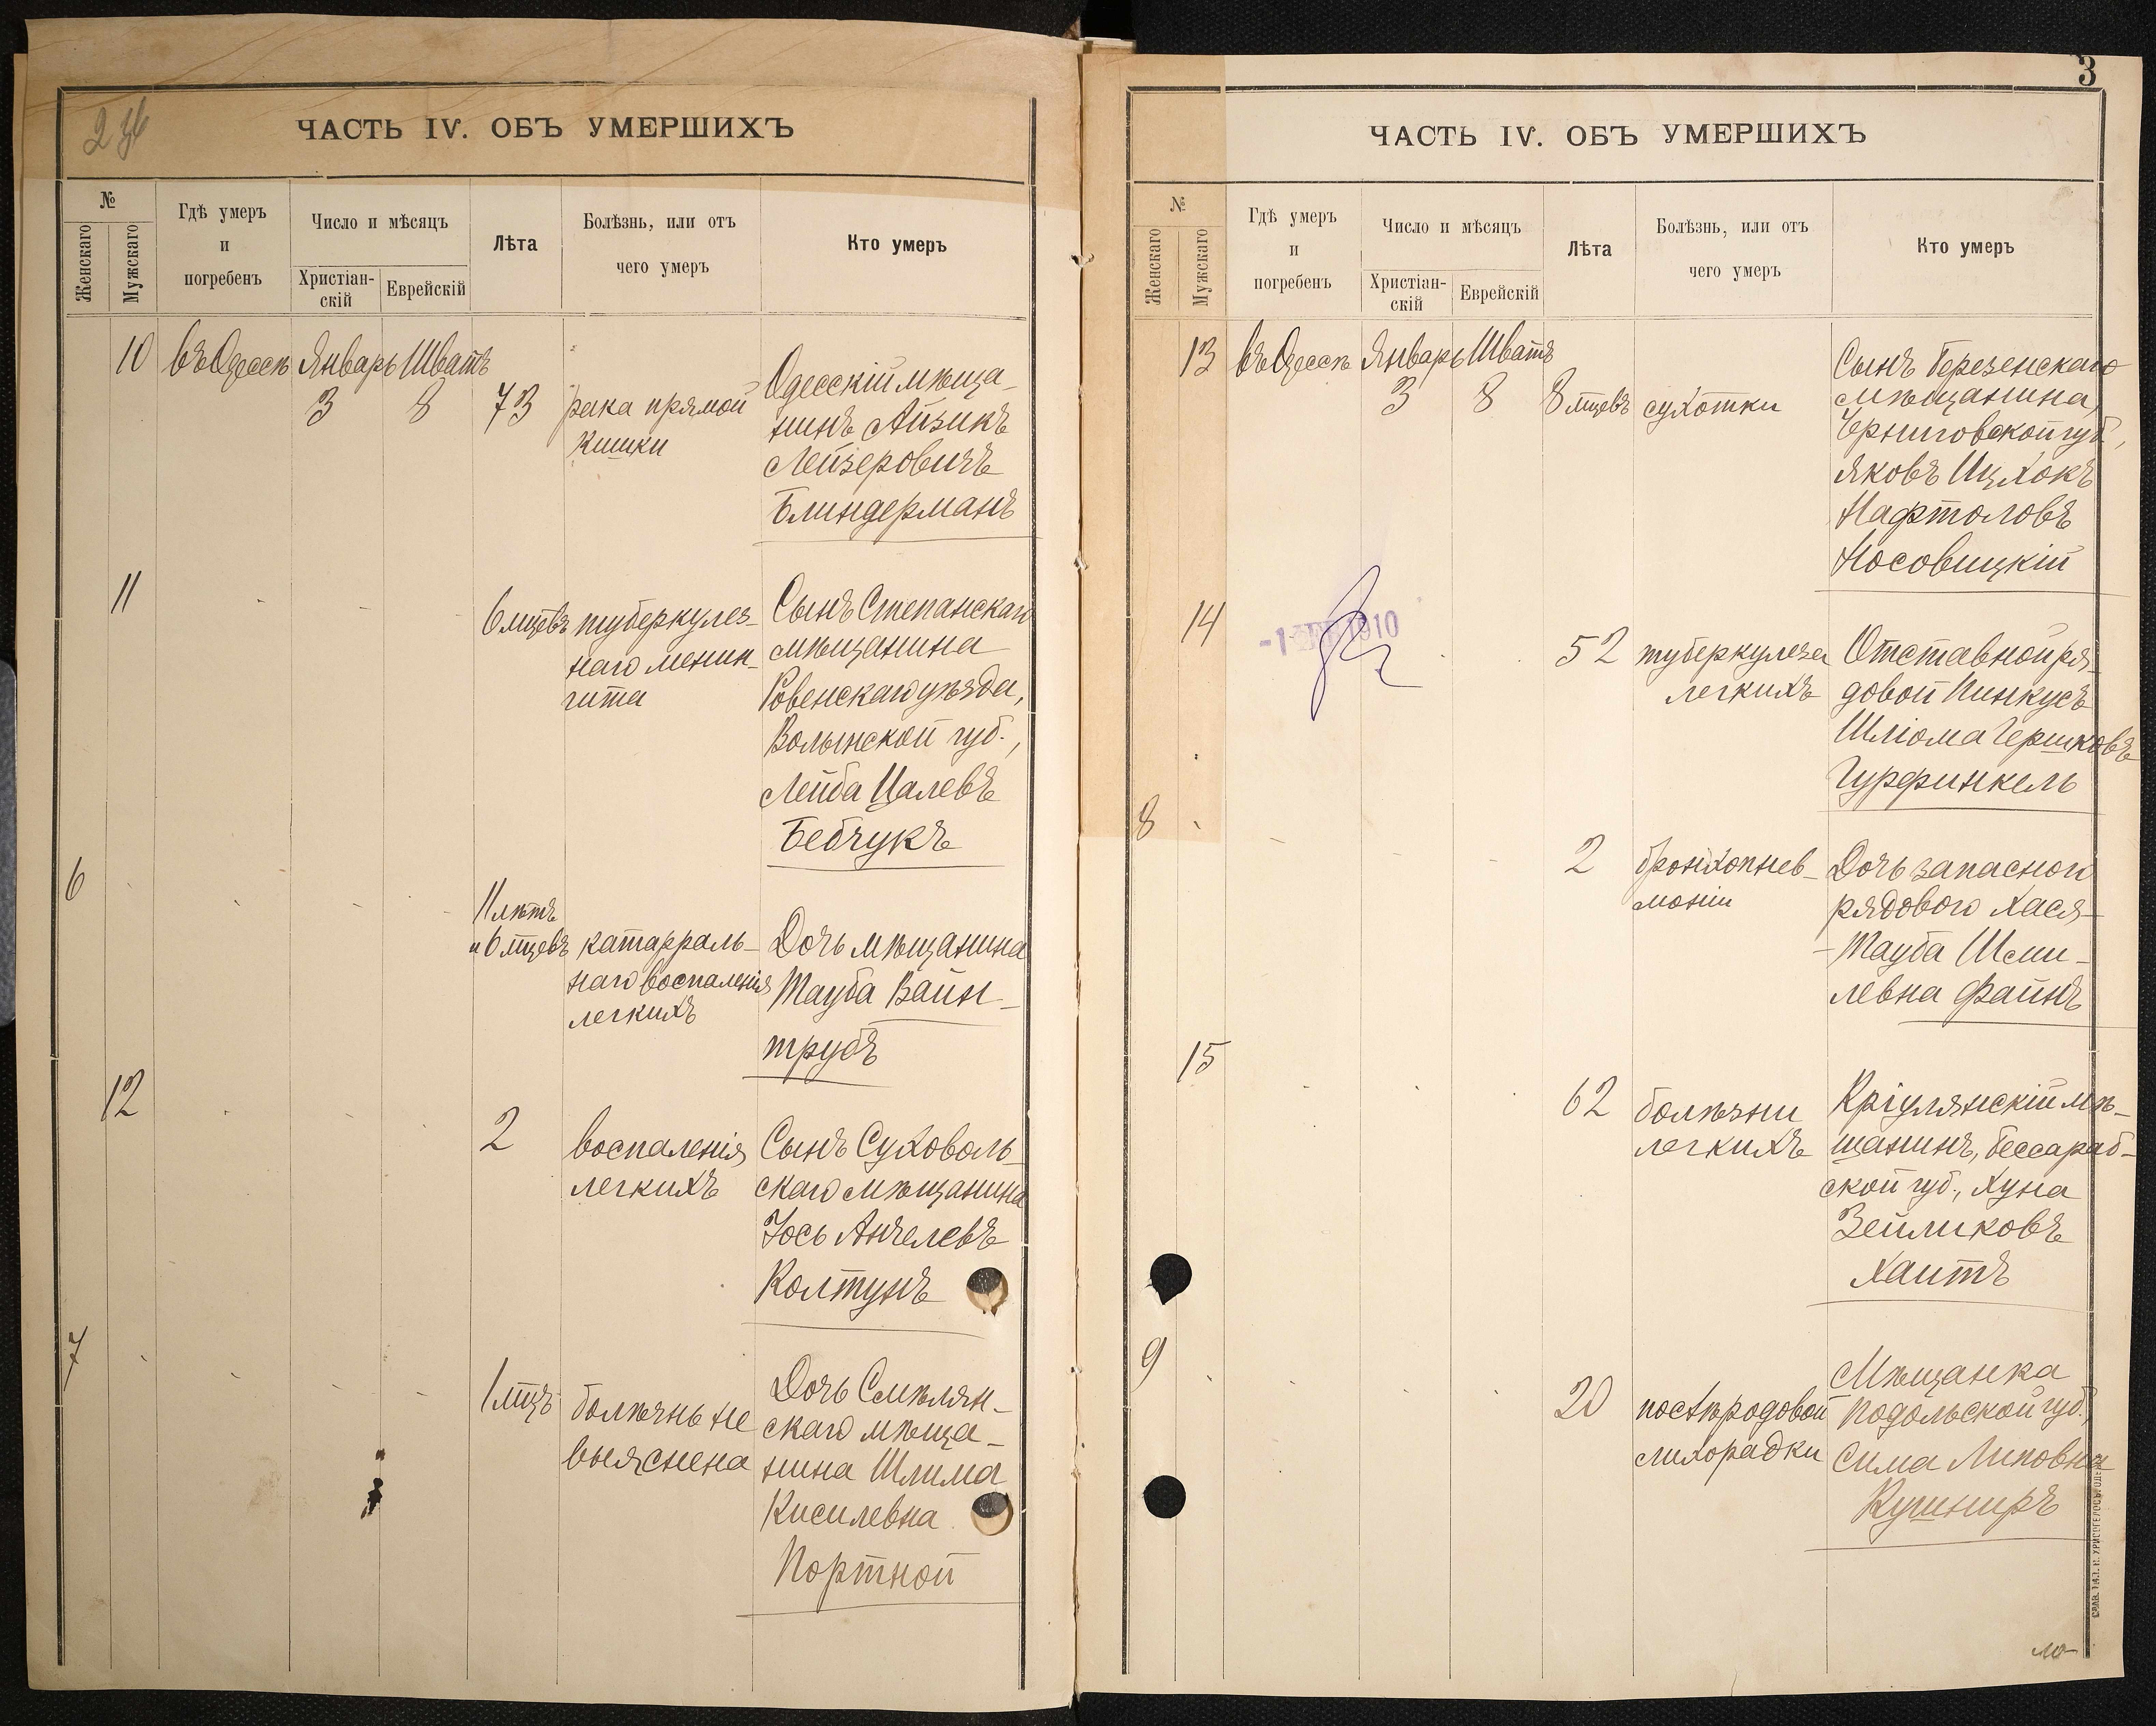 ЧАСТЬ IV. ОБЪ УМЕРШИХЪ
№
Женскаго
Мужскаго
Гдѣ умеръ
и
погребенъ
Число и мѣсяцъ
Христіан-
скій
Еврейскій
Лѣта
Болѣзнь, или отъ
чего умеръ
Кто умеръ
10 въ Одессѣ Январь Шватъ
3 8 73
рака прямой
кишки
Одесскій мѣща-
нинъ Айзикъ
Лейзеровичъ
Блиндерманъ
11
6 мцевъ
туберкулез-
наго менин-
гита
Сынъ Степанскаго
мѣщанина
Ровенскаго уѣзда,
Волынской губ.,
Лейба Цалевъ
Бебчукъ
6
11 лѣтъ
и 6 мцевъ
катарраль-
наго воспаленія
легкихъ
Дочь мѣщанина
Тауба Вайн-
трубъ
12
2
воспаленія
легкихъ
Сынъ Суховоль-
скаго мѣщанина
Іось Анчелевъ
Колтунъ
7
1 мцъ
болѣзнь не
выяснена
Дочь Смѣлян-
скаго мѣща-
нина Шлима
Кисилевна
Портной
3
ЧАСТЬ IV. ОБЪ УМЕРШИХЪ
№
Женскаго
Мужскаго
Гдѣ умеръ
и
погребенъ
Число и мѣсяцъ
Христіан-
скій
Еврейскій
Лѣта
Болѣзнь, или отъ
чего умеръ
Кто умеръ
13 въ Одессѣ Январь Шватъ
3 8 8 мцевъ
сухотки
Сынъ Березенскаго
мѣщанина,
Черниговской губ.,
Яковъ Ицхокъ
Нафтоловъ
Носовицкій
14
1910
52
туберкулеза
легкихъ
Отставной ря-
довой Пинкусъ
Шліома Гершковъ
Гурфинкель
8
2
бронхопнев-
моніи
Дочь запасного
рядового Хася-
-Тауба Шми-
левна Файнъ
15
62
болѣзни
легкихъ
Кріулянскій мѣ-
щанинъ, Бессараб-
ской губ., Хуна
Зейликовъ
Хаитъ
9
20
послѣродовой
лихорадки
Мѣщанка
Подольской губ.,
Сима Липовна
Кушниръ